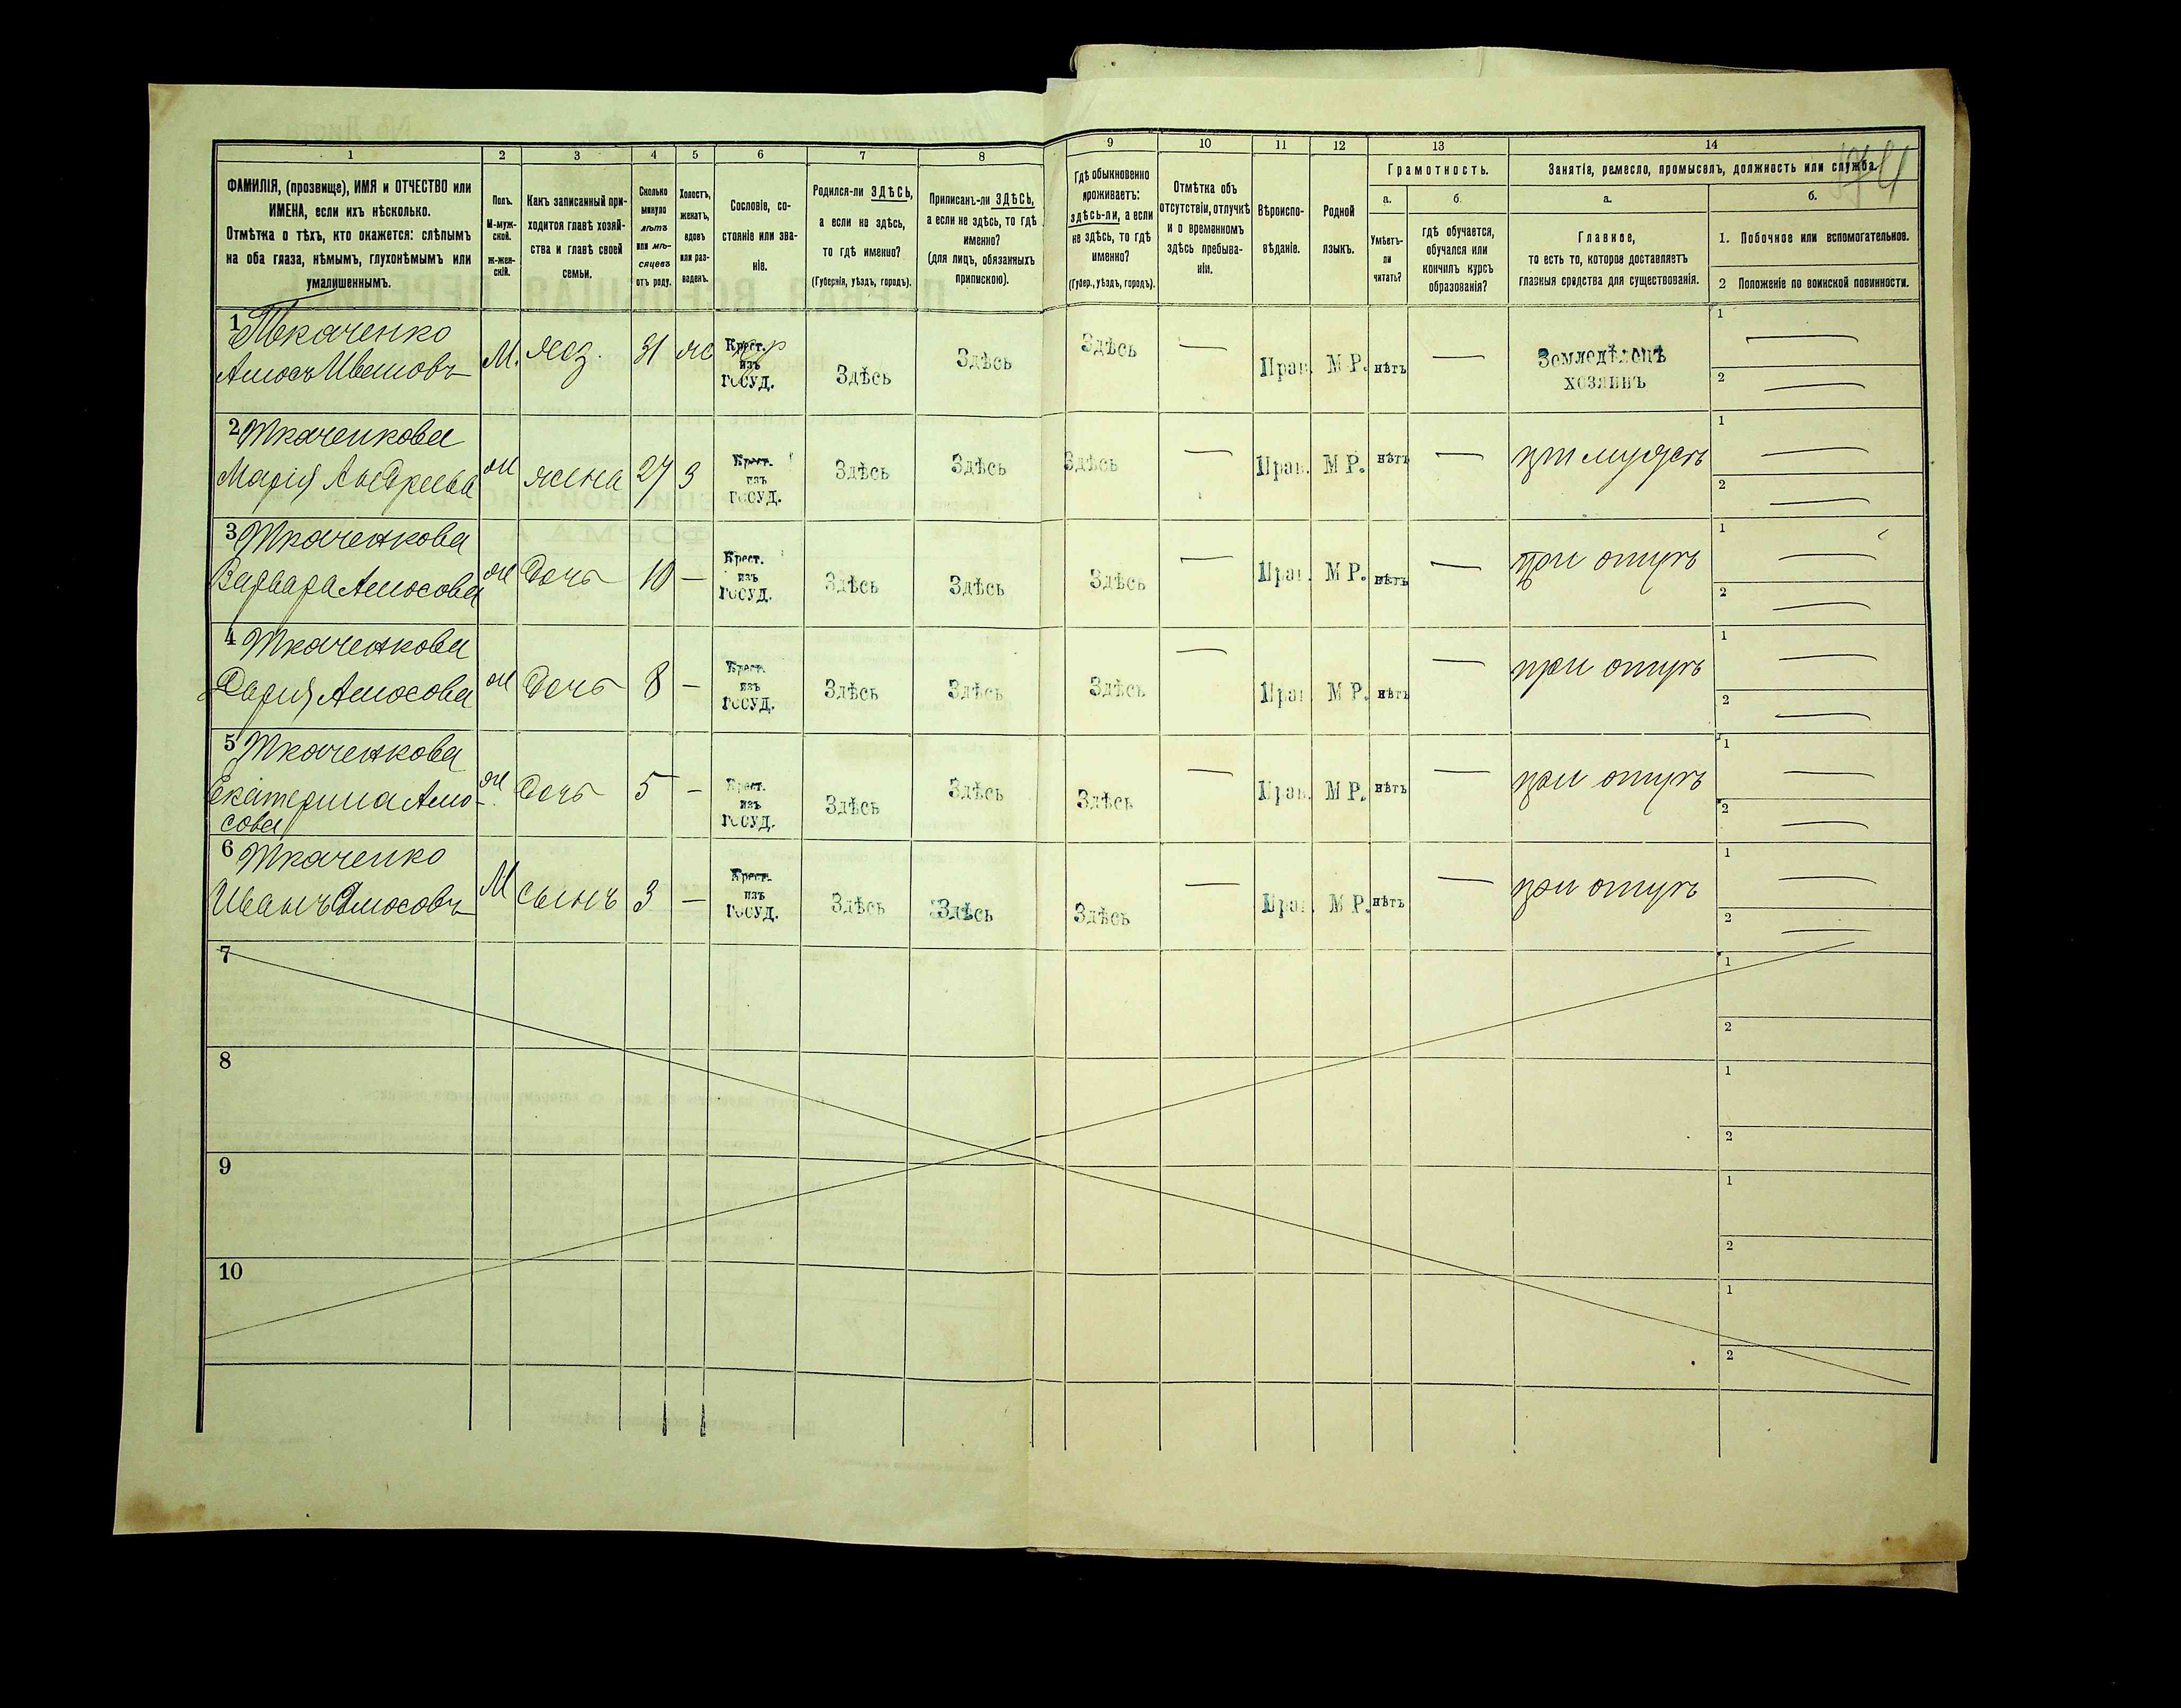 1 2 3 4 5 6 7 8 9 10 11 12 13 14
ФАМИЛІЯ, (прозвище), ИМЯ и ОТЧЕСТВО или
ИМЕНА, если ихъ нѣсколько.
Отмѣтка о тѣхъ, кто окажется: слѣпымъ
на оба глаза, нѣмымъ, глухонѣмымъ или
умалишеннымъ.
Полъ.
М-муж-
ской.
ж-жен-
скій.
Какъ записанный при-
ходится главѣ хозяй-
ства и главѣ своей
семьи.
Сколько
минуло
лѣтъ
или мѣ-
сяцевъ
отъ роду.
Холостъ,
женатъ,
вдовъ
или раз-
веденъ.
Сословіе, со-
стояніе или зва-
ніе.
Родился-ли ЗДѢСЬ,
а если не здѣсь,
то гдѣ именно?
(Губернія, уѣздъ, городъ).
Приписанъ-ли ЗДѢСЬ,
а если не здѣсь, то гдѣ
именно?
(для лицъ, обязанныхъ
припискою).
Гдѣ обыкновенно
проживаетъ:
здѣсь-ли, а если
не здѣсь, то гдѣ
именно?
(Губер., уѣздъ, городъ).
Отмѣтка объ
отсутствіи, отлучкѣ
и о временномъ
здѣсь пребыва-
ніи.
Вѣроиспо-
вѣданіе.
Родной
языкъ.
Грамотность.
а.
Умѣетъ-
ли
читать?
б.
гдѣ обучается,
обучался или
кончилъ курсъ
образованія?
Занятіе, ремесло, промыселъ, должность или служба.
а.
Главное,
то есть то, которое доставляетъ
главныя средства для существованія.
б.
1. Побочное или вспомогательное.
2 Положеніе по воинской повинности.
1 Ткаченко
Амосъ Ивановъ М. хоз. 31 ж Крест. изъ ГОСУД. Здѣсь Здѣсь Здѣсь — Прав. М Р. нѣтъ — Земледѣлецъ хозяинъ 1 — 2 —
2 Ткаченкова
Марія Андреева ж жена 27 З Крест. изъ ГОСУД. Здѣсь Здѣсь Здѣсь — Прав. М Р. нѣтъ — при мужѣ 1 — 2 —
3 Ткаченкова
Варвара Амосова ж Дочь 10 — Крест. изъ ГОСУД. Здѣсь Здѣсь Здѣсь — Прав. М Р. нѣтъ — при отцѣ 1 — 2 —
4 Ткаченкова
Дарія Амосова ж Дочь 8 — Крест. изъ ГОСУД. Здѣсь Здѣсь Здѣсь — Прав. М Р. нѣтъ — при отцѣ 1 — 2 —
5 Ткаченкова
Екатерина Амо-
сова ж Дочь 5 — Крест. изъ ГОСУД. Здѣсь Здѣсь Здѣсь — Прав. М Р. нѣтъ — при отцѣ 1 — 2 —
6 Ткаченко
Иванъ Амосовъ М сынъ 3 — Крест. изъ ГОСУД. Здѣсь Здѣсь Здѣсь — Прав. М Р. нѣтъ — при отцѣ 1 — 2 —
7 1 2
8 1 2
9 1 2
10 1 2